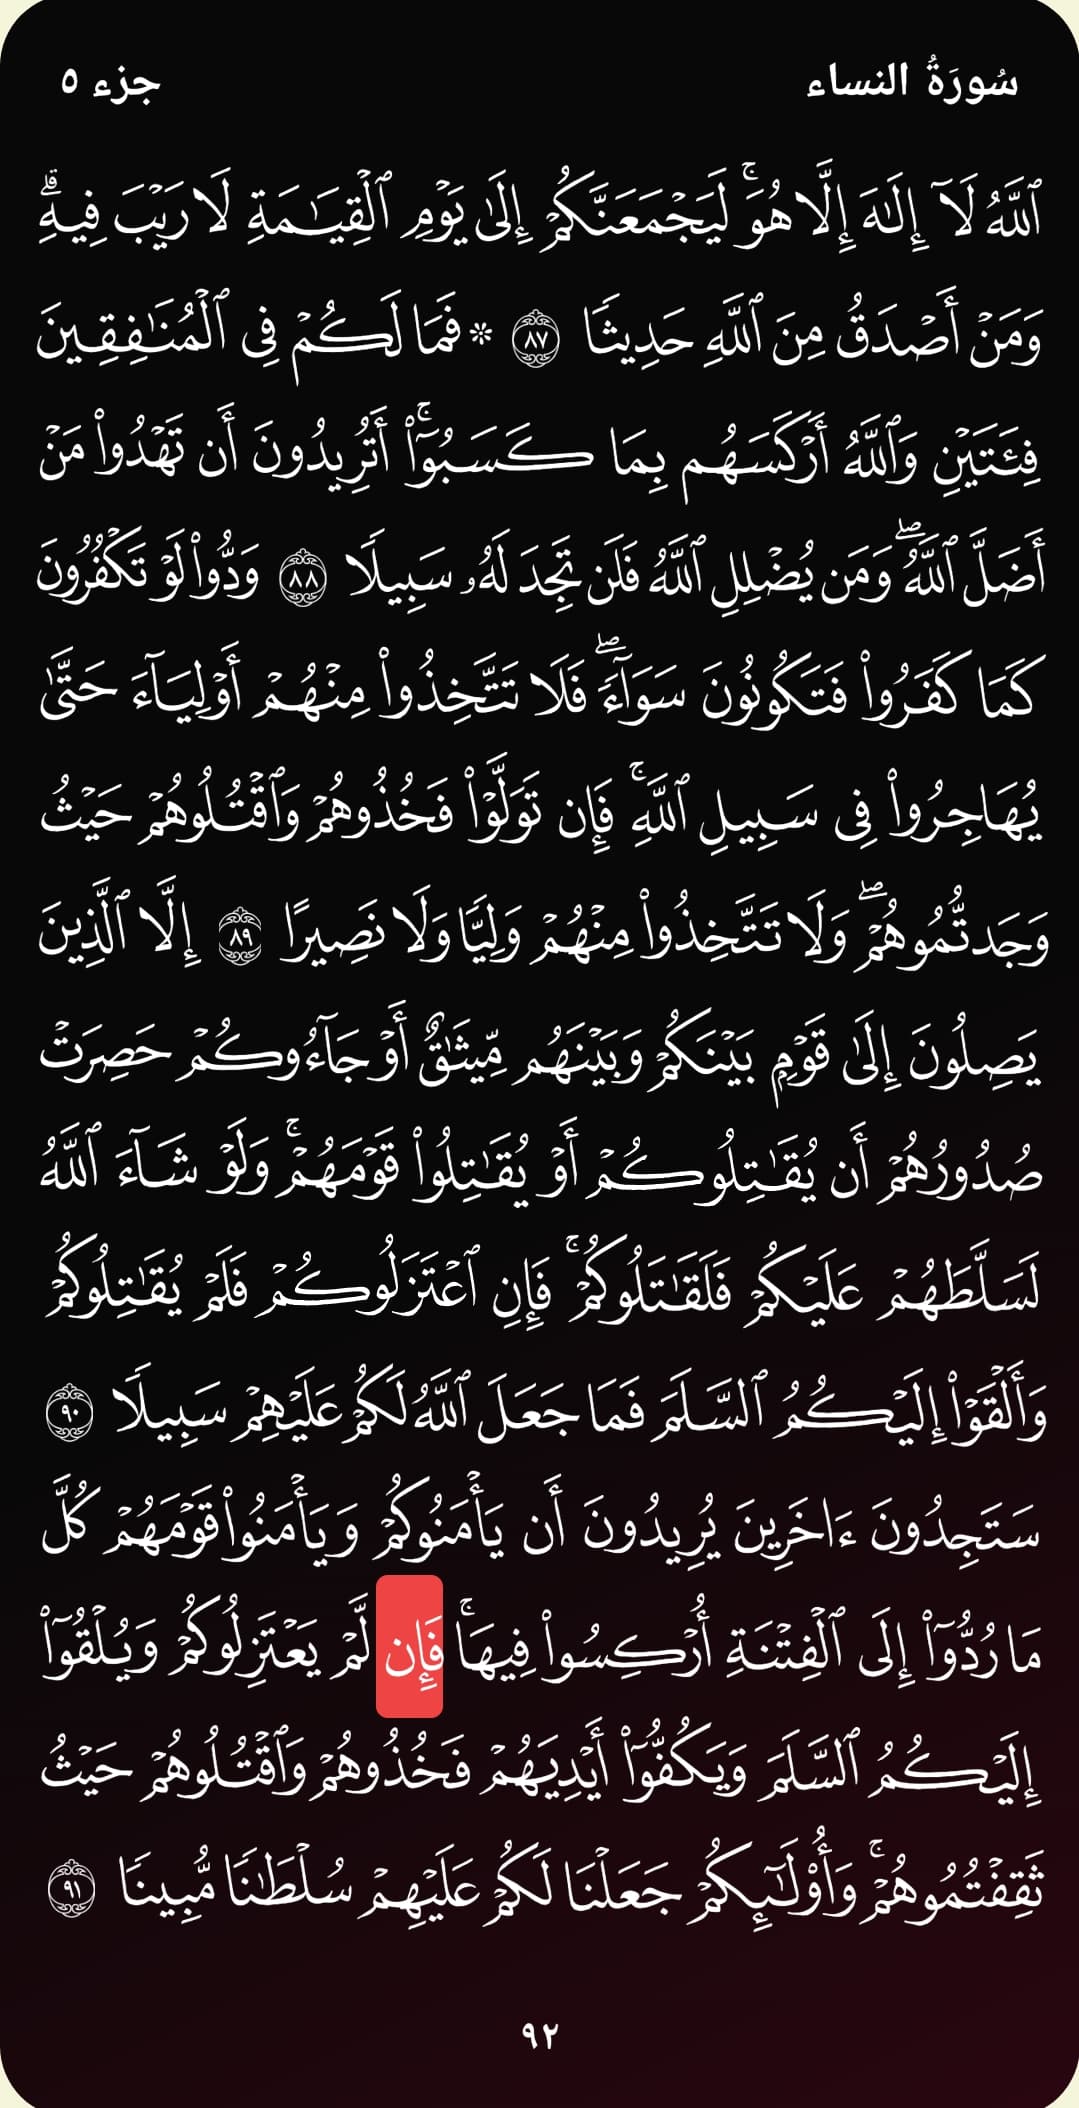 سُورَةُ النساء
جزء ٥
ٱللَّهُ لَآ إِلَٰهَ إِلَّا هُوَۚ لَيَجۡمَعَنَّكُمۡ إِلَىٰ يَوۡمِ ٱلۡقِيَٰمَةِ لَا رَيۡبَ فِيهِۗ
وَمَنۡ أَصۡدَقُ مِنَ ٱللَّهِ حَدِيثٗا ٨٧ ۞ فَمَا لَكُمۡ فِي ٱلۡمُنَٰفِقِينَ
فِئَتَيۡنِ وَٱللَّهُ أَرۡكَسَهُم بِمَا كَسَبُوٓاْۚ أَتُرِيدُونَ أَن تَهۡدُواْ مَنۡ
أَضَلَّ ٱللَّهُۖ وَمَن يُضۡلِلِ ٱللَّهُ فَلَن تَجِدَ لَهُۥ سَبِيلٗا ٨٨ وَدُّواْ لَوۡ تَكۡفُرُونَ
كَمَا كَفَرُواْ فَتَكُونُونَ سَوَآءٗۖ فَلَا تَتَّخِذُواْ مِنۡهُمۡ أَوۡلِيَآءَ حَتَّىٰ
يُهَاجِرُواْ فِي سَبِيلِ ٱللَّهِۚ فَإِن تَوَلَّوۡاْ فَخُذُوهُمۡ وَٱقۡتُلُوهُمۡ حَيۡثُ
وَجَدتُّمُوهُمۡۖ وَلَا تَتَّخِذُواْ مِنۡهُمۡ وَلِيّٗا وَلَا نَصِيرًا ٨٩ إِلَّا ٱلَّذِينَ
يَصِلُونَ إِلَىٰ قَوۡمِۭ بَيۡنَكُمۡ وَبَيۡنَهُم مِّيثَٰقٌ أَوۡ جَآءُوكُمۡ حَصِرَتۡ
صُدُورُهُمۡ أَن يُقَٰتِلُوكُمۡ أَوۡ يُقَٰتِلُواْ قَوۡمَهُمۡۚ وَلَوۡ شَآءَ ٱللَّهُ
لَسَلَّطَهُمۡ عَلَيۡكُمۡ فَلَقَٰتَلُوكُمۡۚ فَإِنِ ٱعۡتَزَلُوكُمۡ فَلَمۡ يُقَٰتِلُوكُمۡ
وَأَلۡقَوۡاْ إِلَيۡكُمُ ٱلسَّلَمَ فَمَا جَعَلَ ٱللَّهُ لَكُمۡ عَلَيۡهِمۡ سَبِيلٗا ٩٠
سَتَجِدُونَ ءَاخَرِينَ يُرِيدُونَ أَن يَأۡمَنُوكُمۡ وَيَأۡمَنُواْ قَوۡمَهُمۡ كُلَّ
مَا رُدُّوٓاْ إِلَى ٱلۡفِتۡنَةِ أُرۡكِسُواْ فِيهَاۚ فَإِن لَّمۡ يَعۡتَزِلُوكُمۡ وَيُلۡقُوٓاْ
إِلَيۡكُمُ ٱلسَّلَمَ وَيَكُفُّوٓاْ أَيۡدِيَهُمۡ فَخُذُوهُمۡ وَٱقۡتُلُوهُمۡ حَيۡثُ
ثَقِفۡتُمُوهُمۡۚ وَأُوْلَٰٓئِكُمۡ جَعَلۡنَا لَكُمۡ عَلَيۡهِمۡ سُلۡطَٰنٗا مُّبِينٗا ٩١
٩٢